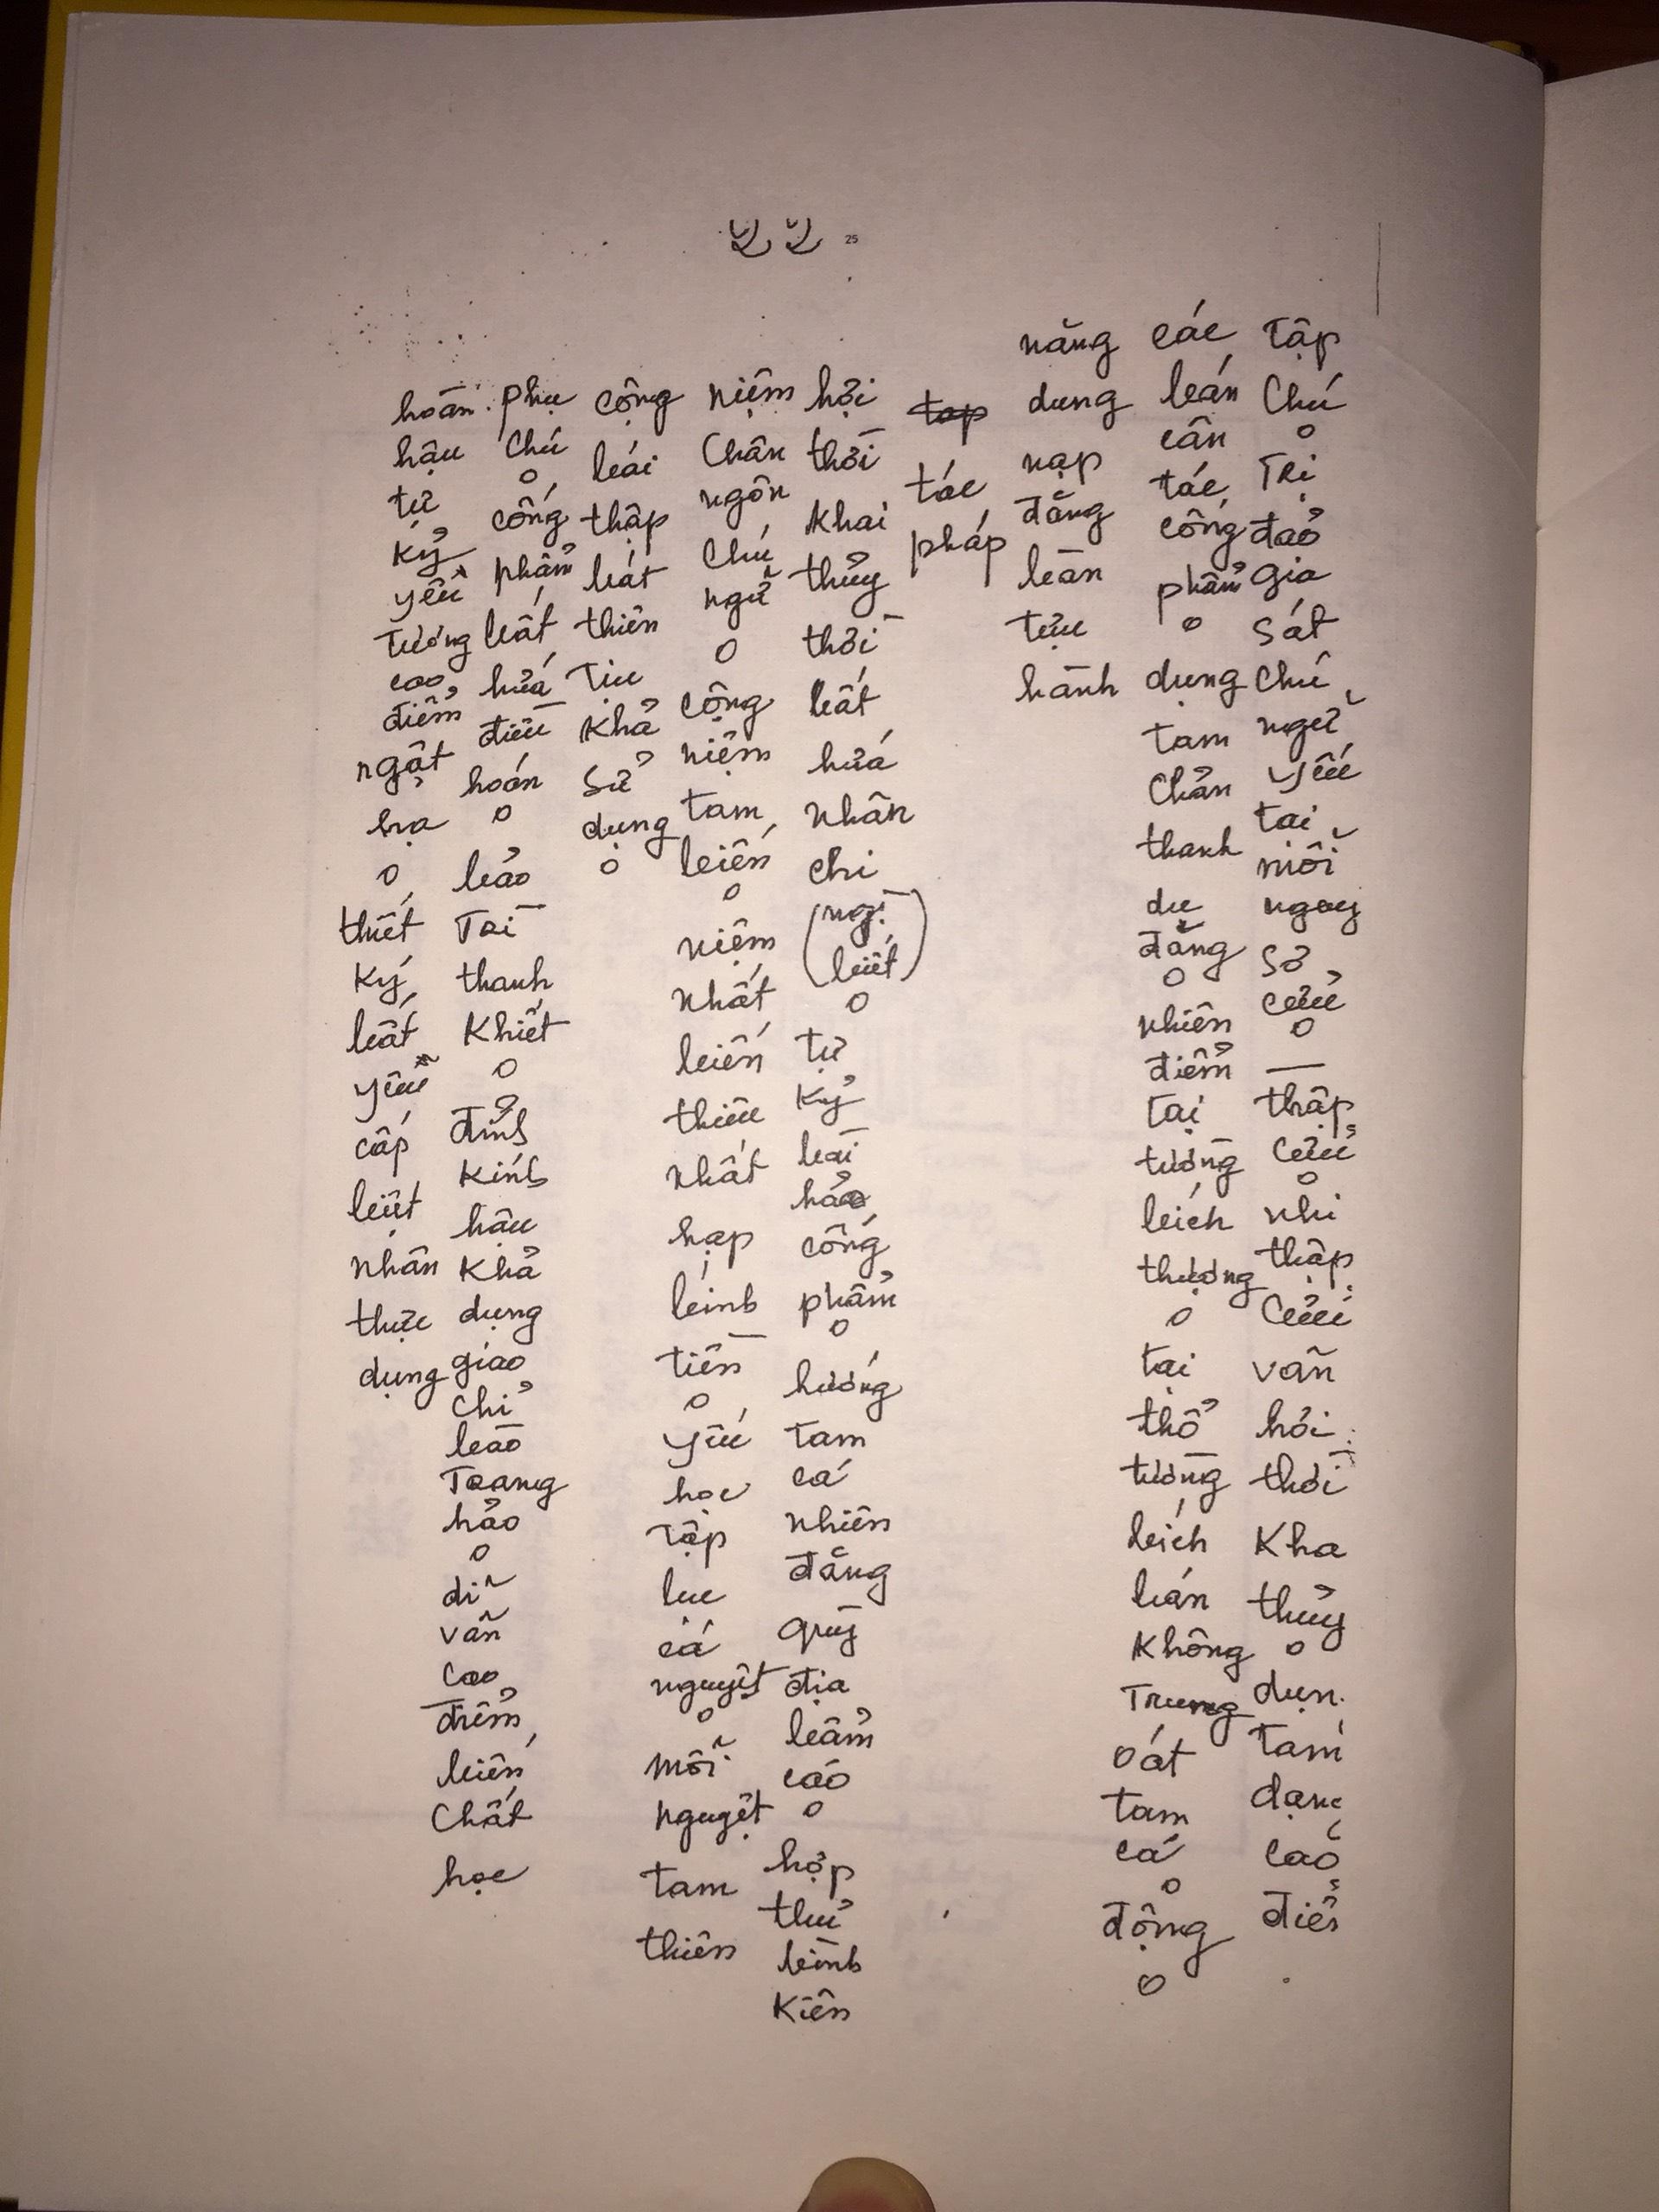 22 25
tập chú o Trị đảo gia sát chú ngữ yếu tại mỗi ngoẹy sơ cửu o — thập cửu o nhi thập cửu vãn hỏi thời kha thủy o dụn tam dạng cáo điể
các bán cân tác cống phẩm o dụng tam chản thanh du đăng o nhiên điểm tại tường bích thượng o tại thổ tường bích bán không trung oát tam cá o động o
năng dung nạp đăng bàn tựu hành
tác pháp
hợi thời khai thủy thời bất hứa nhân chi (ngị biết) o tự kỷ bài hảo cống phẩm o hướng tam cá nhiên đăng quỳ địa bẩm cáo o hợp thủ bình kiên
niệm chân ngôn chú ngữ o cộng niệm tam biến o niệm nhất biến thiêu nhất hạp binh tiền o yếu học tập lục cá nguyệt o mỗi nguyệt tam thiên
cộng bái thập bát thiên tịu khả sử dụng o
phụ chú o cống phẩm bất hứa điều hoán o bảo trì thanh khiết o đỉnh kính hậu khả dụng giao chỉ bao trang hảo o dĩ vãn cao điểm biến chất học
hoán hậu tự kỷ yếu tương cao điểm ngật hạ o thiết ký bất yếu cấp biệt nhân thực dụng